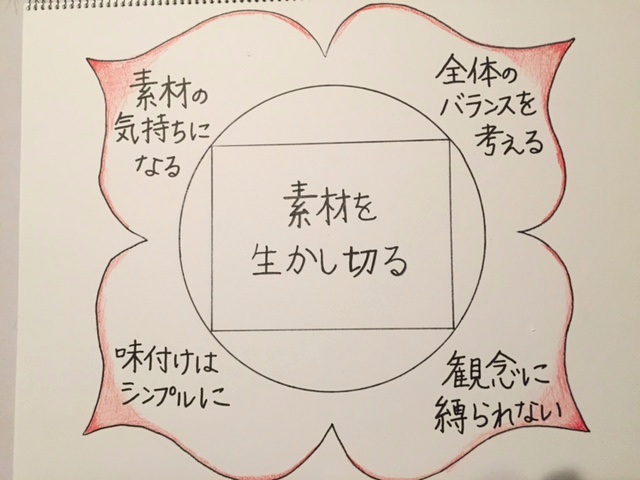 素材の
気持ちに
なる
全体の
バランスを
考える
素材を
生かし切る
味付けは
シンプルに
観念に
縛られない